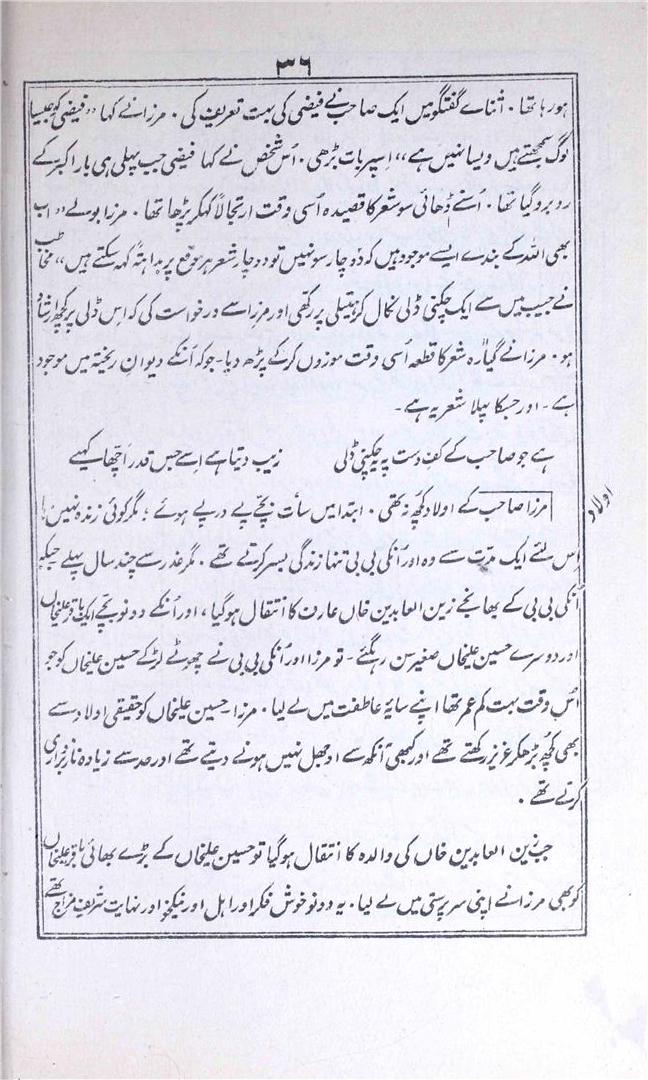 ۳۶
ہو رہا تھا۔ اثناے گفتگو میں ایک صاحب نے فیضی کی بہت تعریف کی۔ مرزا نے کہا "فیضی کو جیسا
لوگ سمجھتے ہیں ویسا نہیں ہے"، اسپر بات بڑھی۔ اُس شخص نے کہا فیضی جب پہلی ہی بار اکبر کے
روبرو گیا تھا۔ اُسنے ڈھائی سو شعر کا قصیدہ اُسی وقت ارتجالاً کہکر پڑھا تھا۔ مرزا بولے "اب
بھی اللہ کے بندے ایسے موجود ہیں کہ دو چار سو نہیں تو دو چار شعر ہر موقع پر بداہتہً کہہ سکتے ہیں"، مخاطب
نے جیب میں سے ایک چکنی ڈلی نکال کر ہتیلی پر رکھی اور مرزا سے درخواست کی کہ اِس ڈلی پر کچھ ارشاد
ہو۔ مرزا نے گیارہ شعر کا قطعہ اُسی وقت موزوں کرکے پڑھ دیا۔ جو کہ اُنکے دیوانِ ریختہ میں موجود
ہے۔ اور جسکا پہلا شعر یہ ہے۔
ہے جو صاحب کے کفِ دست پہ یہ چکنی ڈلی زیب دیتا ہے اسے جس قدر اچھا کہیے
اولاد
مرزا صاحب کے اولاد کچھ نہ تھی۔ ابتدا میں سات بچّے پے درپے ہوئے؛ مگر کوئی زندہ نہیں رہا
اِس لئے ایک مدّت سے وہ اور اُنکی بی بی تنہا زندگی بسر کرتے تھے۔ مگر غدر سے چند سال پہلے جبکہ
اُنکی بی بی کے بھانجے زین العابدین خاں عارف کا انتقال ہوگیا، اور اُنکے دونو بچّے ایک باقر علیخاں
اور دوسرے حسین علیخاں صغیر سن رہگئے۔ تو مرزا اور اُنکی بی بی نے چھوٹے لڑکے حسین علیخاں کو جو
اُس وقت بہت کم عمر تھا اپنے سایۂ عاطفت میں لے لیا۔ مرزا حسین علیخاں کو حقیقی اولاد سے
بھی کچھ بڑھکر عزیز رکھتے تھے اور کبھی آنکھ سے اوجھل نہیں ہونے دیتے تھے اور حد سے زیادہ ناز برداری
کرتے تھے۔
جب زین العابدین خاں کی والدہ کا انتقال ہوگیا تو حسین علیخاں کے بڑے بھائی باقر علیخاں
کو بھی مرزا نے اپنی سرپرستی میں لے لیا۔ یہ دونو خوش فکر اور اہل اور نیکخو اور نہایت شریف مزاج تھے